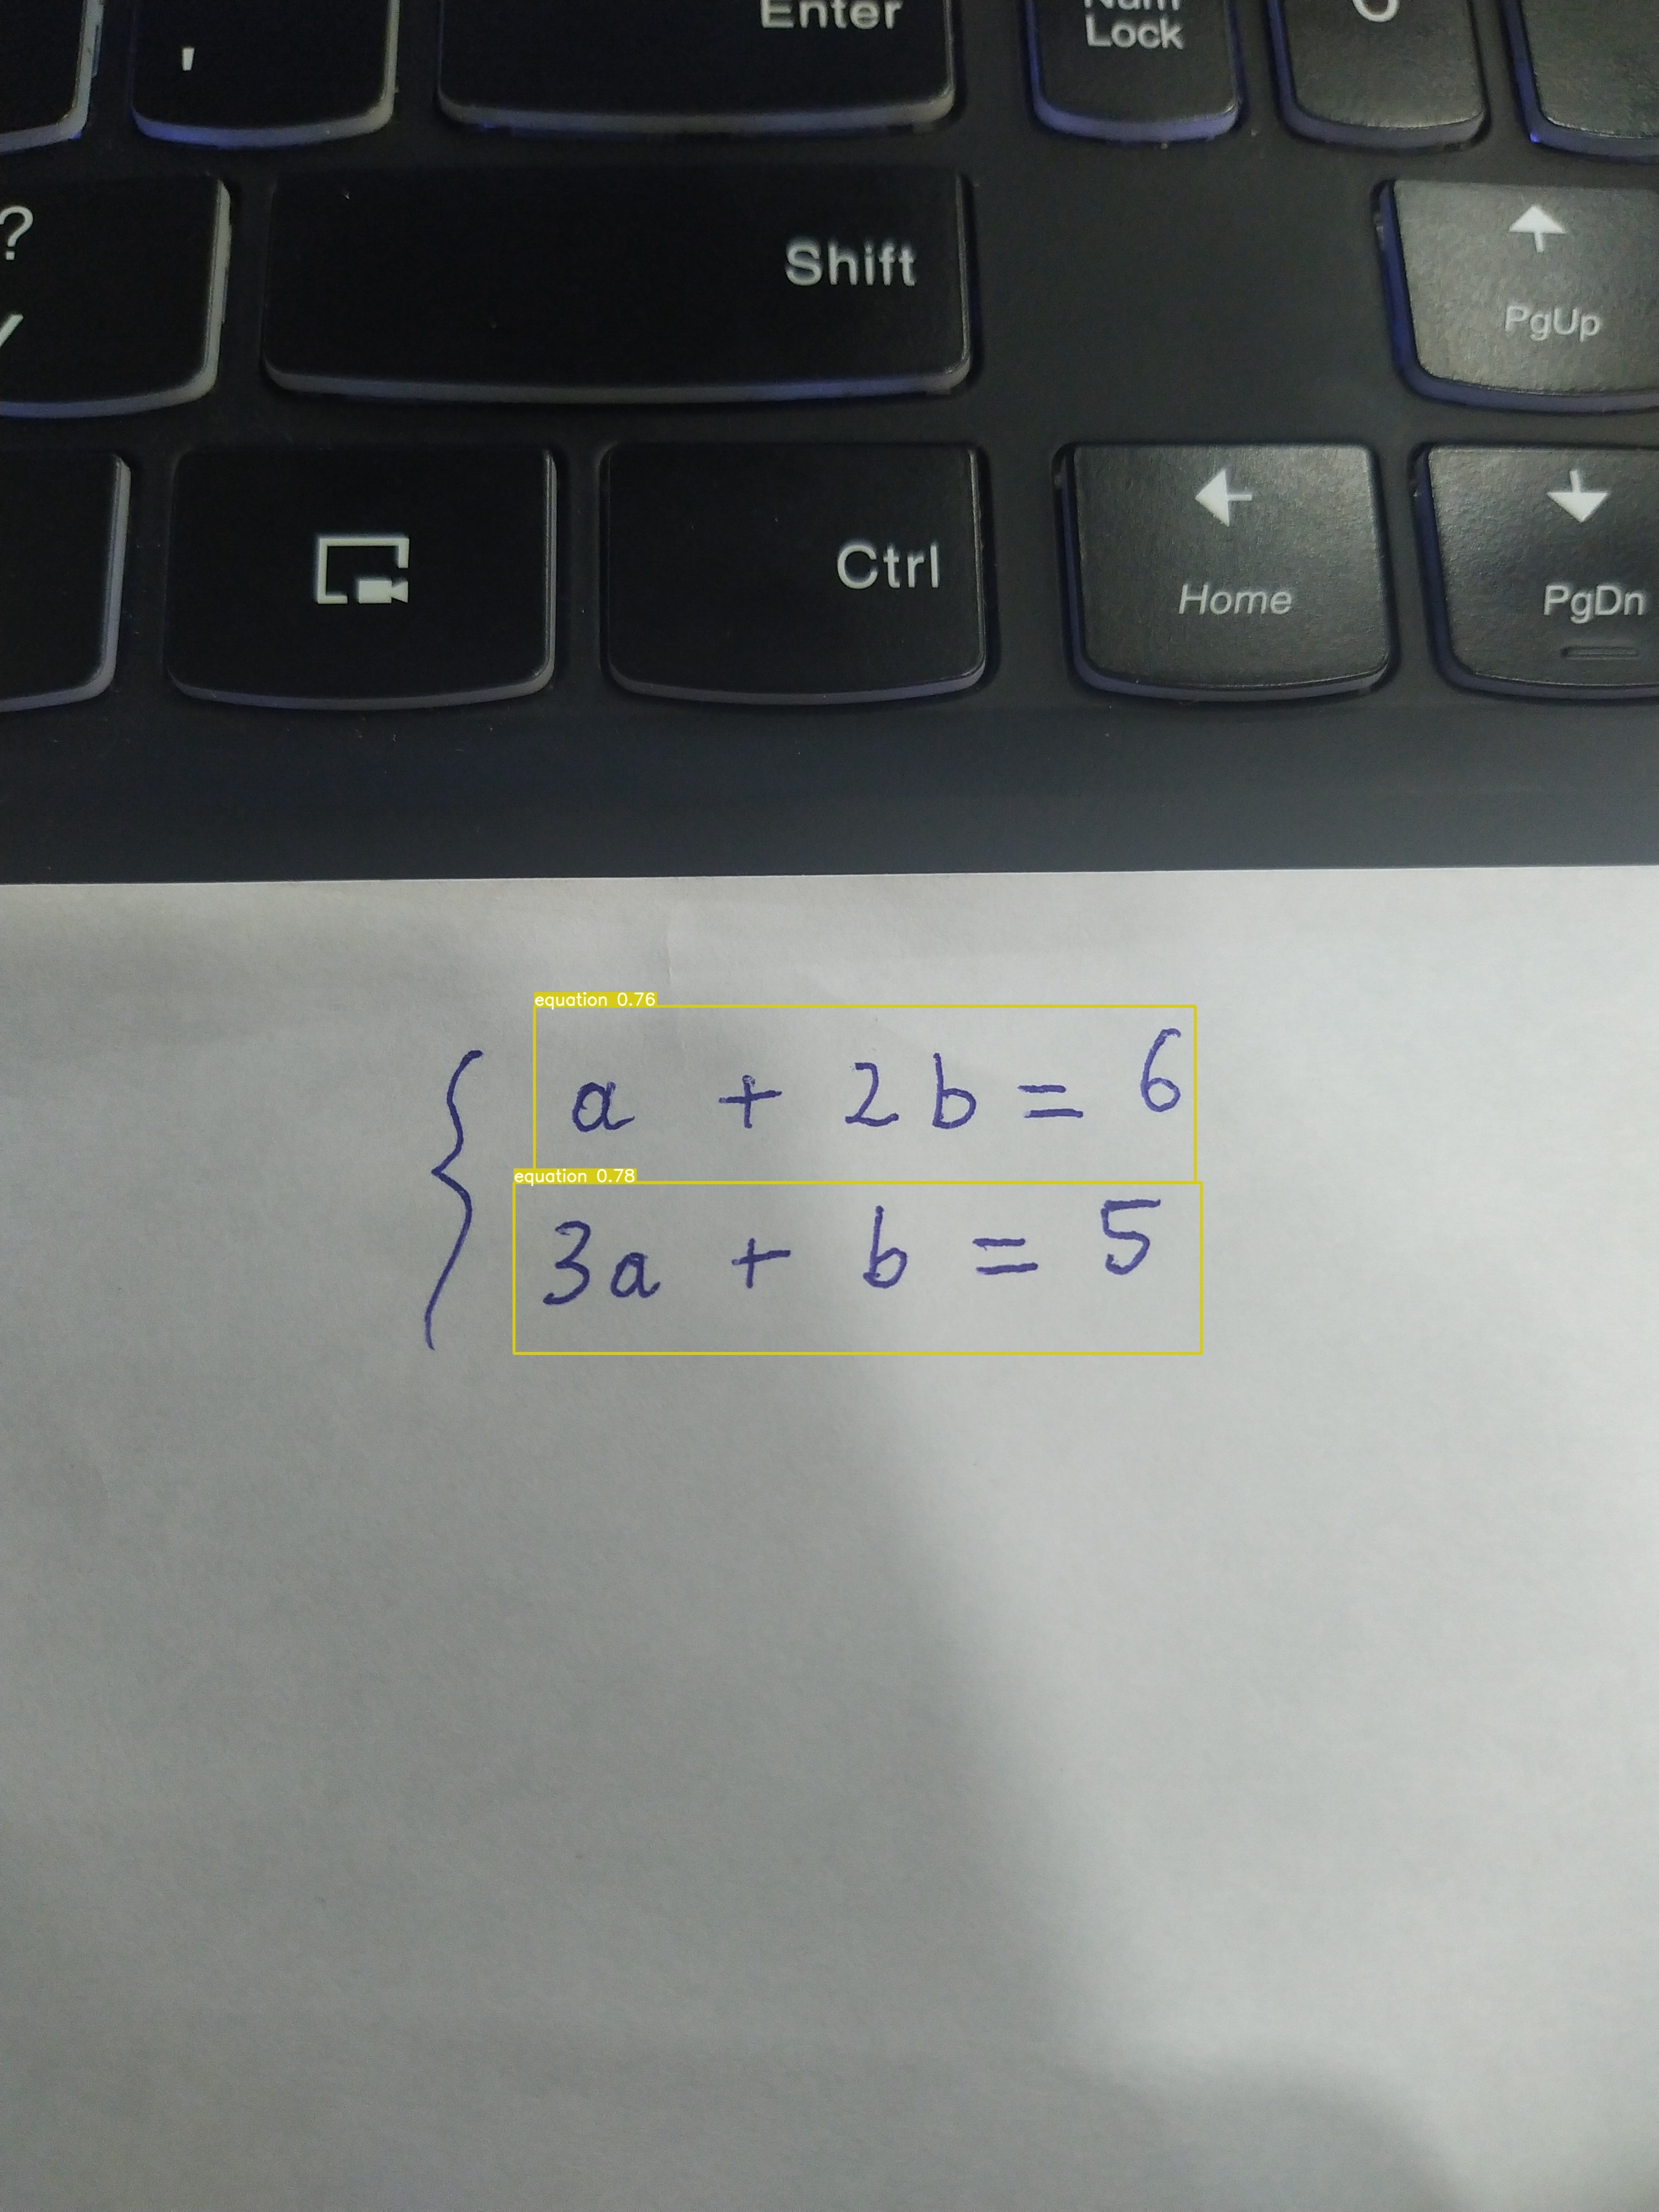 '
Enter
Num
Lock
?
Shift
PgUp
Ctrl
Home
PgDn
equation 0.76
a + 2b = 6
equation 0.78
3a + b = 5